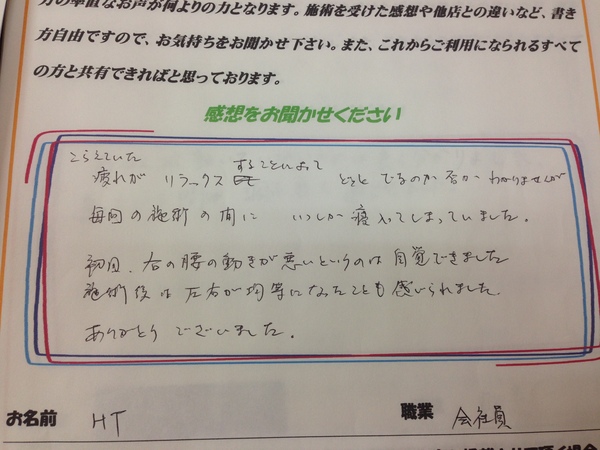 力の率直なお声が何よりの力となります。施術を受けた感想や他店との違いなど、書き
方自由ですので、お気持ちをお聞かせ下さい。また、これからご利用になられるすべて
の方と共有できればと思っております。
感想をお聞かせください
こらえていた
疲れが リラックス することによって どっと でるのか否か わかりませんが
毎回の施術の間に いつしか寝入ってしまっていました。
初回、右の腰の動きが悪いというのは自覚できました
施術後は左右が均等になったことも感じられました。
ありがとうございました。
お名前 HT 職業 会社員